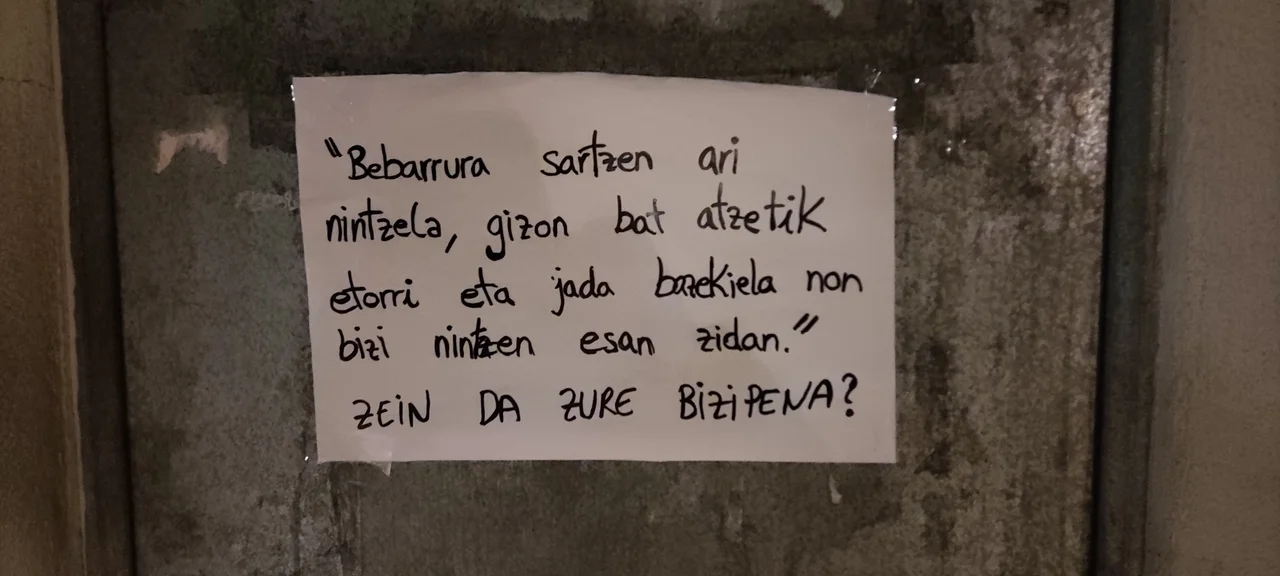 "Bebarrura sartzen ari
nintzela, gizon bat atzetik
etorri eta jada bazekiela non
bizi nintzen esan zidan."
ZEiN DA ZURE BiZiPENA?